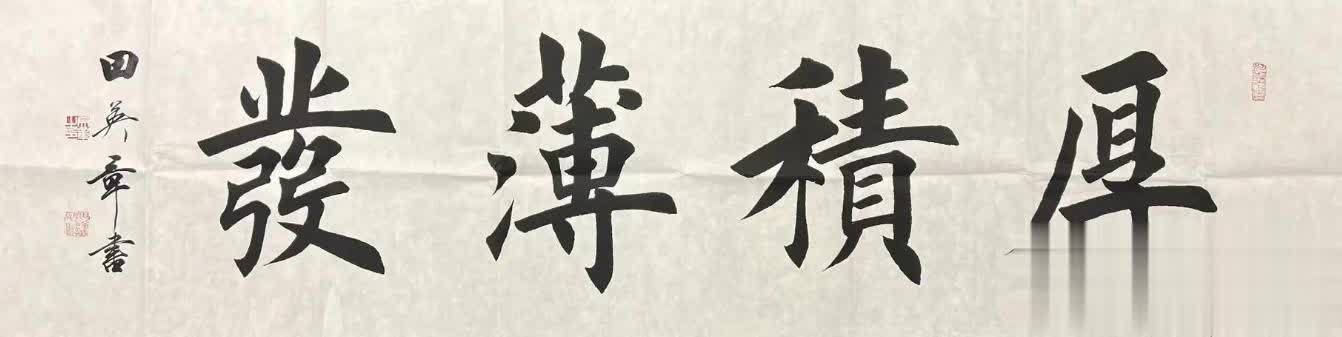 厚積薄發
田英章書